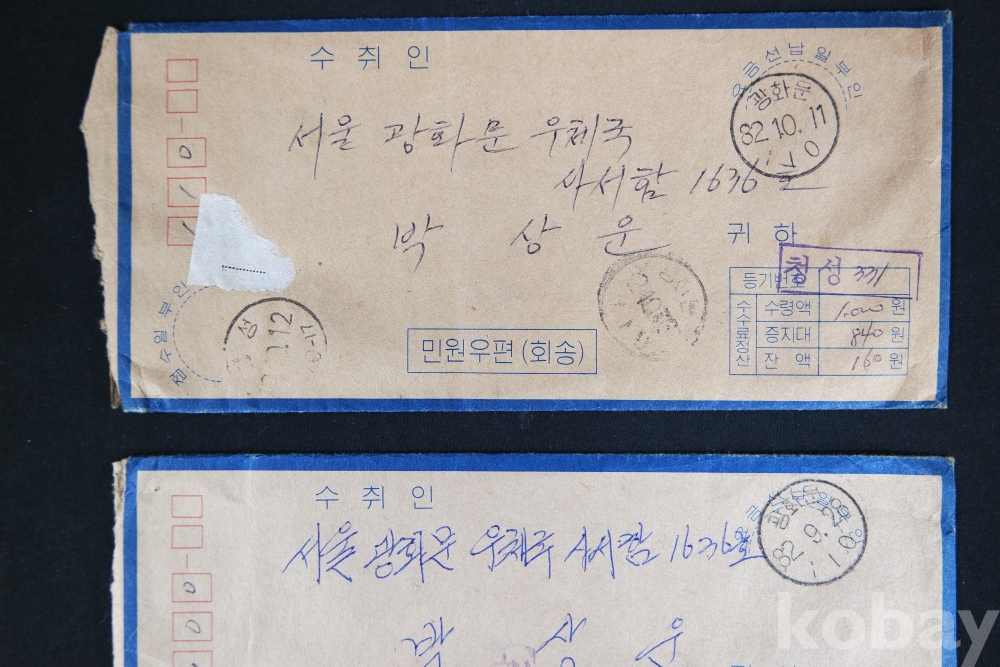 수취인
요금선납일부인
광화문
82.10.11
서울 광화문 우체국
사서함 1636호
박상운
귀하
청성 331
등기번호
수수료정산
수령액 1,000원
증지대 840원
잔액 160원
접수일부인
민원우편(회송)
수취인
서울 광화문 우체국 사서함 1636호
광화문
82.9.
박상우
kobay